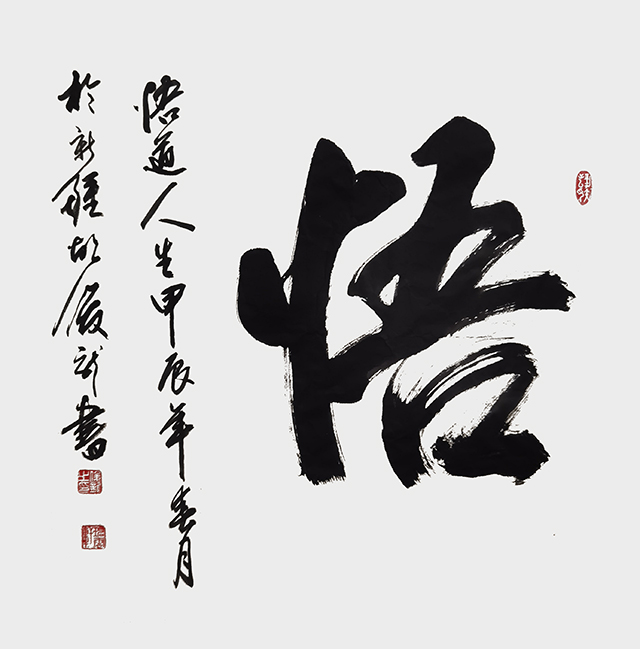 悟
悟道人生甲辰年春月
於新疆胡俊龍書